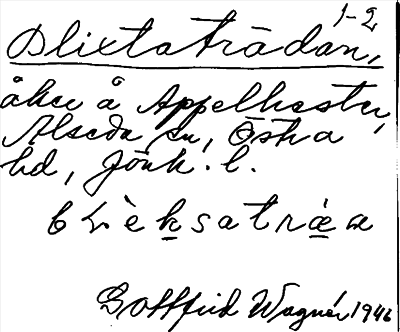 1-2
Blixtaträdan,
åker å Appelhester,
Alseda sn, Östra
hd, Jönk. l.
blèksatræ̀a
Gottfrid Wagnér 1946